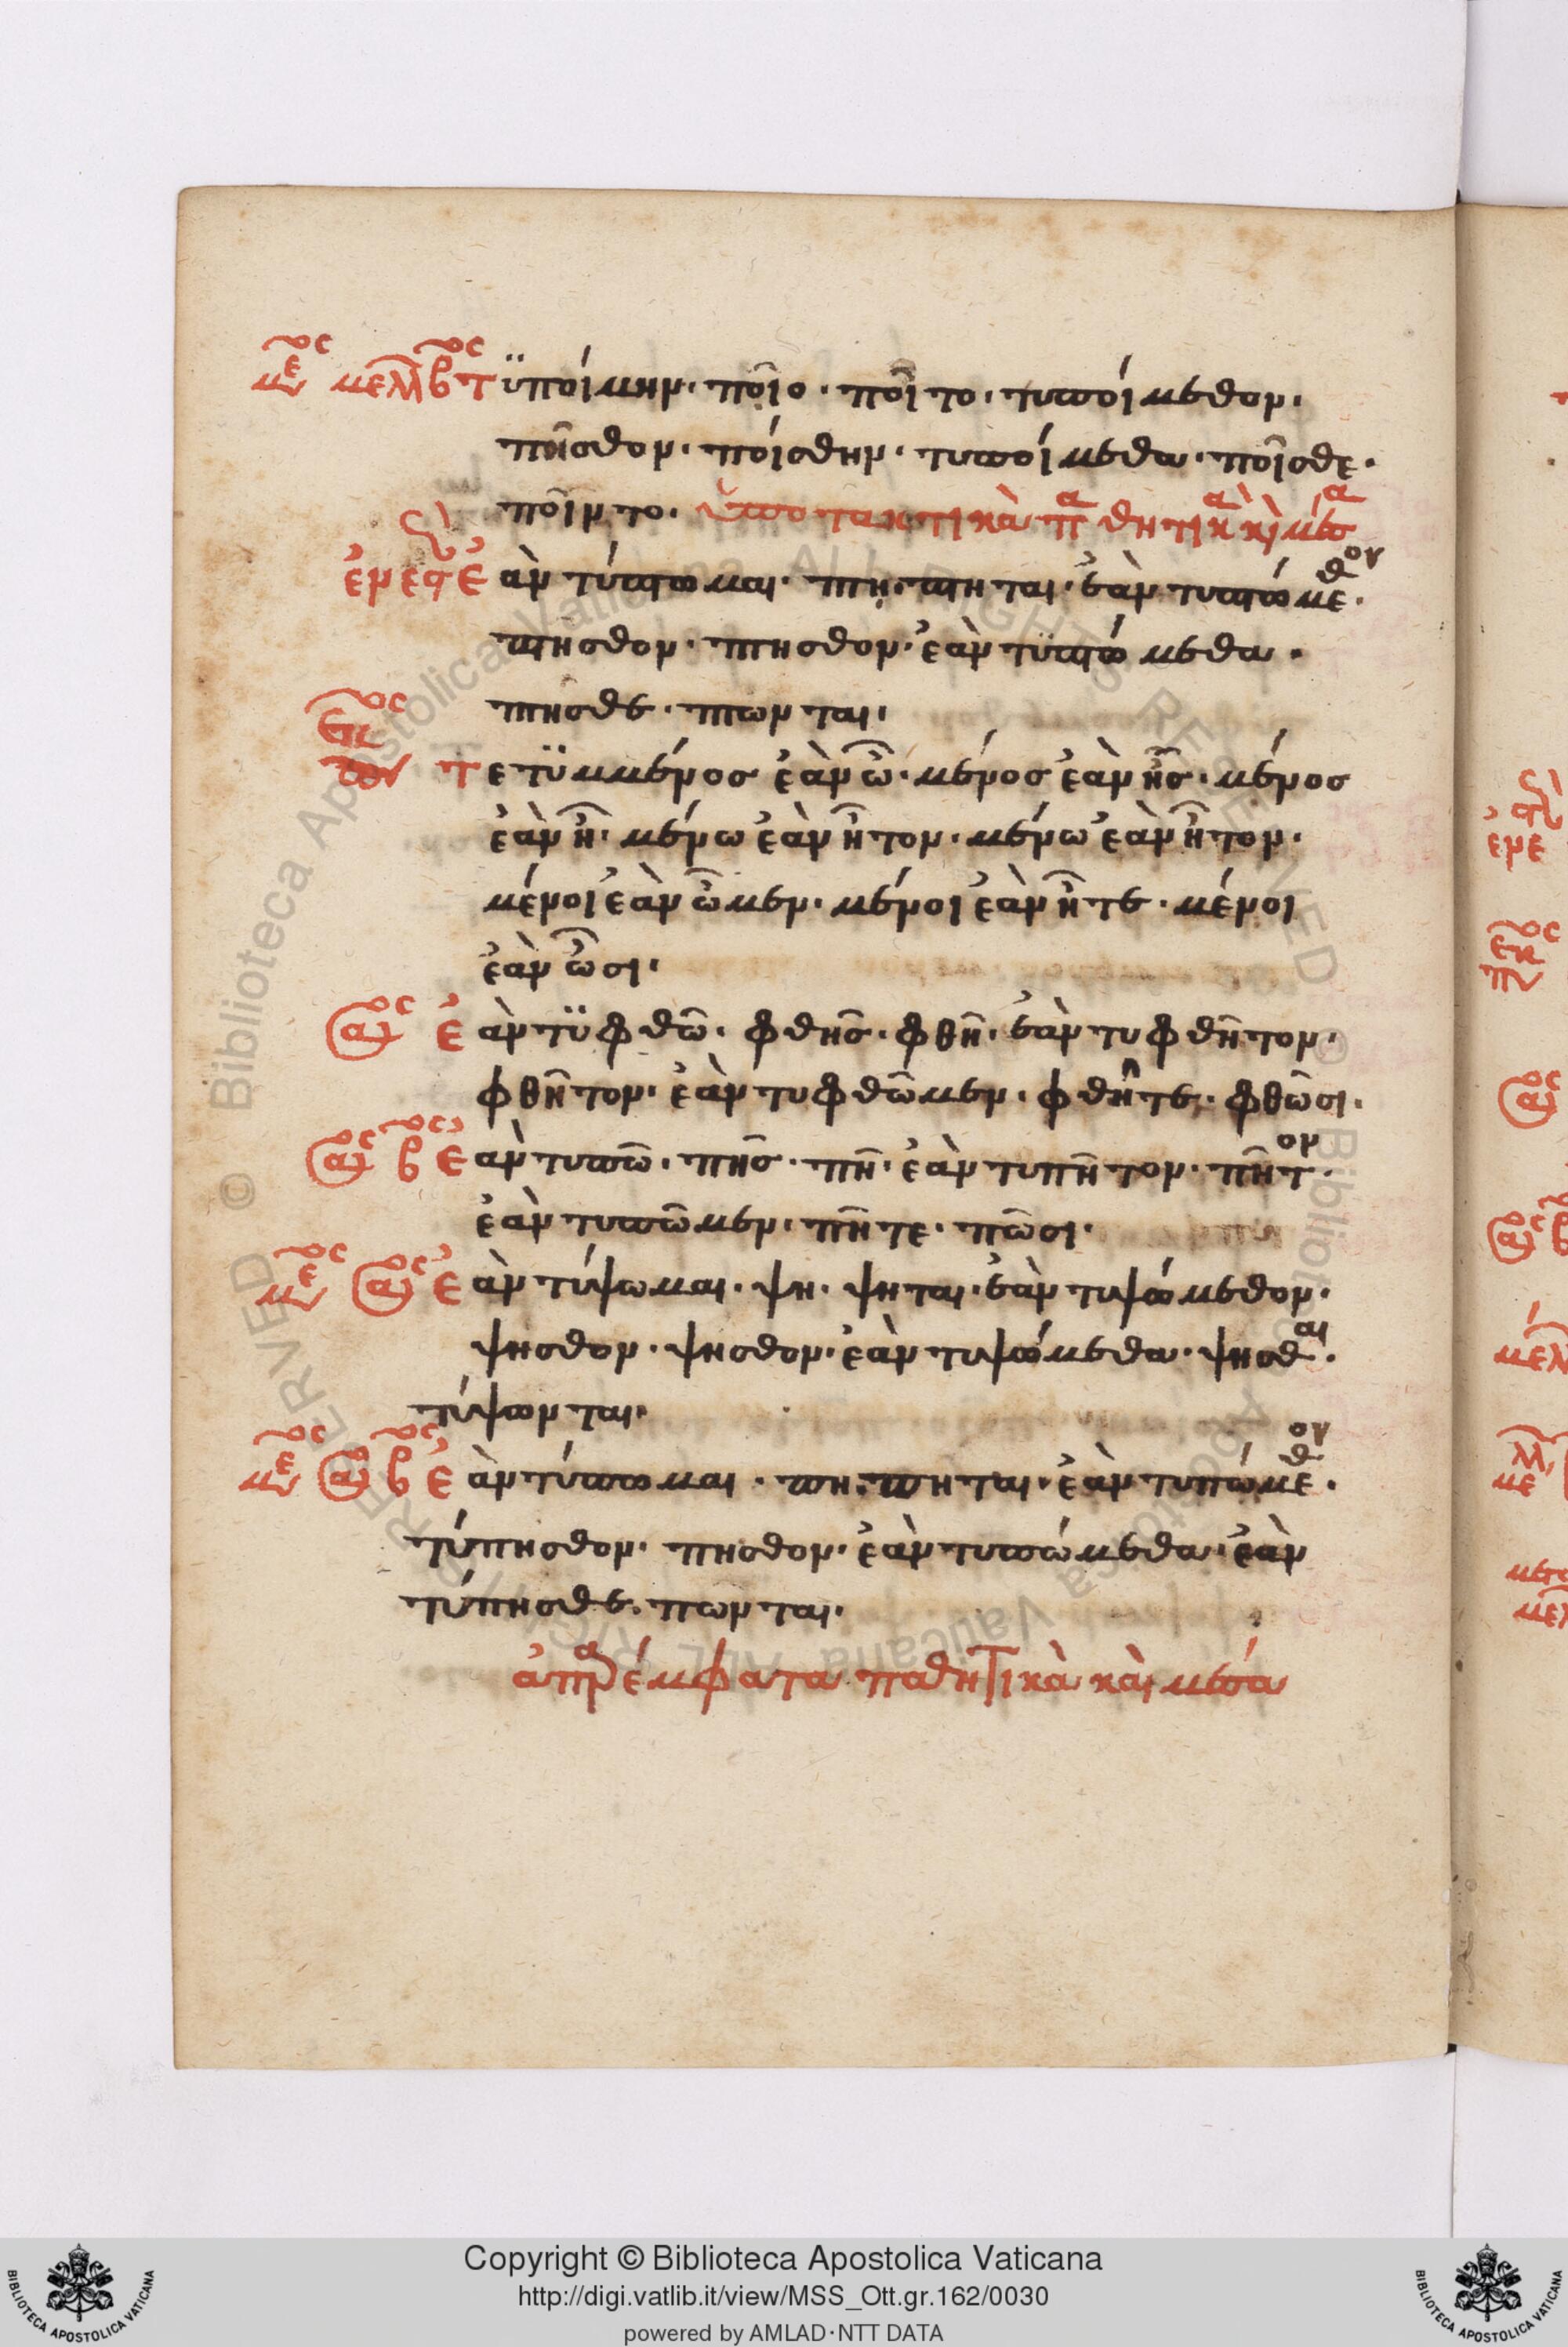 μέσος μέλλων βος τϋποίμην· ποῖο· ποῖτο· τυποίμεθον·
ποῖσθον· ποίσθην· τυποίμεθα· ποῖσθε·
ποῖντο· ὑποτακτικὰ παθητικὰ καὶ μέσα
ἐνεσ ἐὰν τύπτωμαι· πτη· πτηται· ἐὰν τυπτώμεθον·
πτησθον· πτησθον· ἐὰν τυπτώμεθα·
πτησθε· πτωνται·
τετϋμμένος ἐὰν ὦ· μένος ἐὰν ἦς· μένος
ἐὰν ἦ· μένω ἐὰν ἦτον· μένω ἐὰν ἦτον·
μένοι ἐὰν ὦμεν· μένοι ἐὰν ἦτε· μένοι
ἐὰν ὦσι·
αος ἐὰν τϋφθῶ· φθῆς· φθῆ· ἐὰν τυφθῆτον·
φθῆτον· ἐὰν τυφθῶμεν· φθῆτε· φθῶσι·
αος βος ἐὰν τυπῶ· πῆς· πῆ· ἐὰν τυπῆτον· πῆτον·
ἐὰν τυπῶμεν· πῆτε· πῶσι·
μέσος αος ἐὰν τύψωμαι· ψη· ψηται· ἐὰν τυψώμεθον·
ψησθον· ψησθον· ἐὰν τυψώμεθα· ψησθαι·
τύψωνται·
μέσος αος βος ἐὰν τύπωμαι· πη· πηται· ἐὰν τυπώμεθον·
τύπησθον· πησθον· ἐὰν τυπώμεθα· ἐὰν
τύπησθε· πωνται·
ἀπαρέμφατα παθητικὰ καὶ μέσα
Copyright © Biblioteca Apostolica Vaticana
http://digi.vatlib.it/view/MSS_Ott.gr.162/0030
powered by AMLAD·NTT DATA